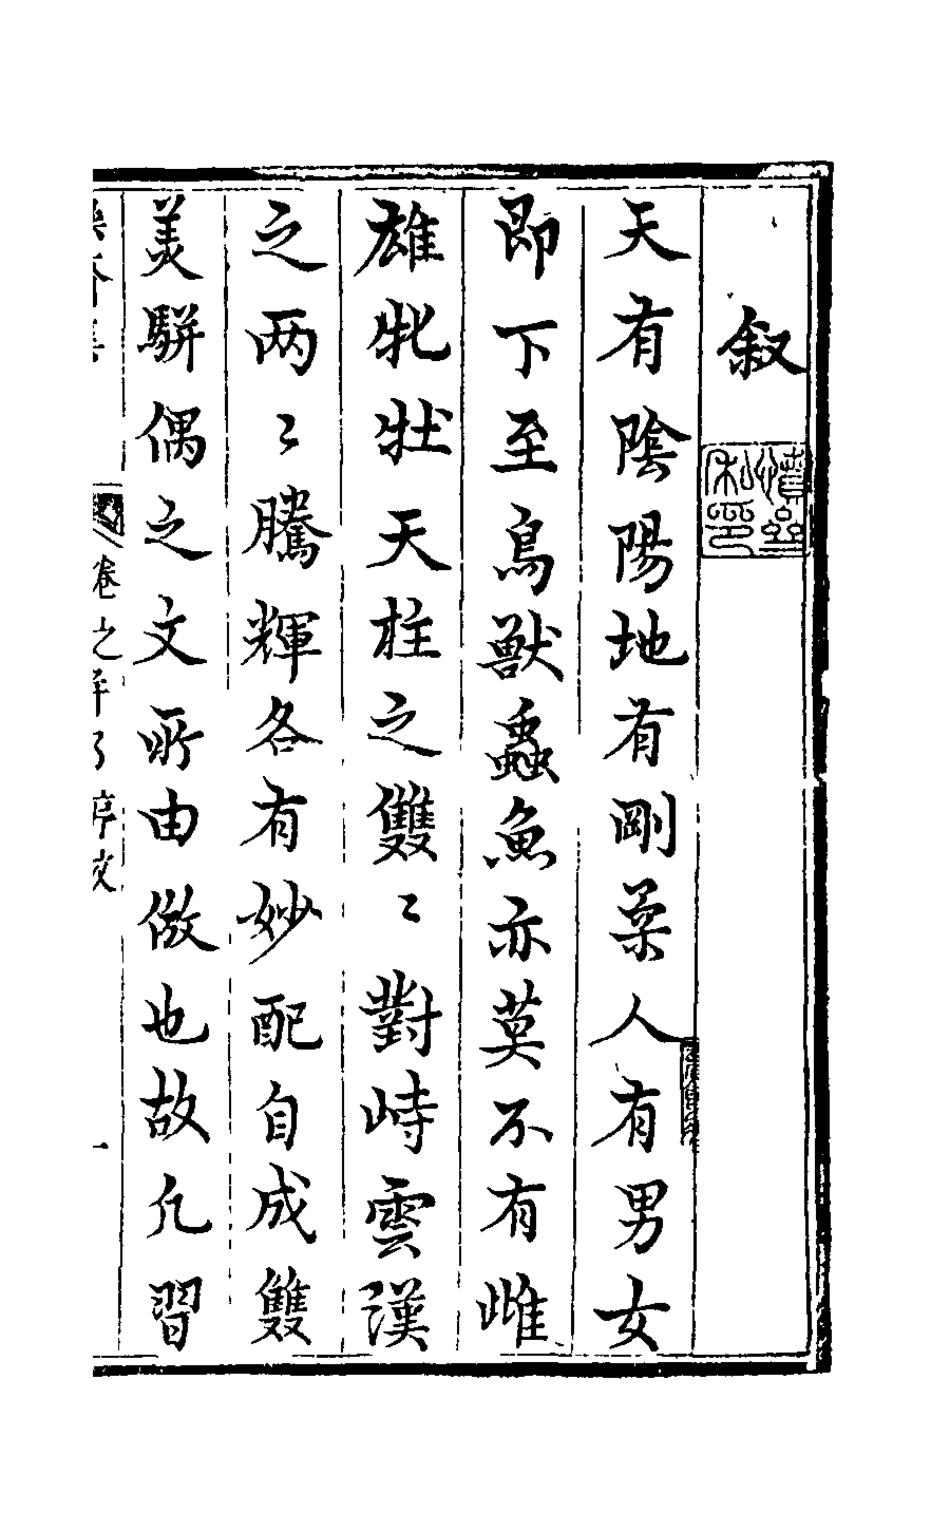 叙
天有陰陽地有剛柔人有男女
即下至鳥獸蟲魚亦莫不有雌
雄牝牡天柱之雙〻對峙雲漢
之两〻騰輝各有妙配自成雙
美駢偶之文所由倣也故凢習
卷之 序文 一